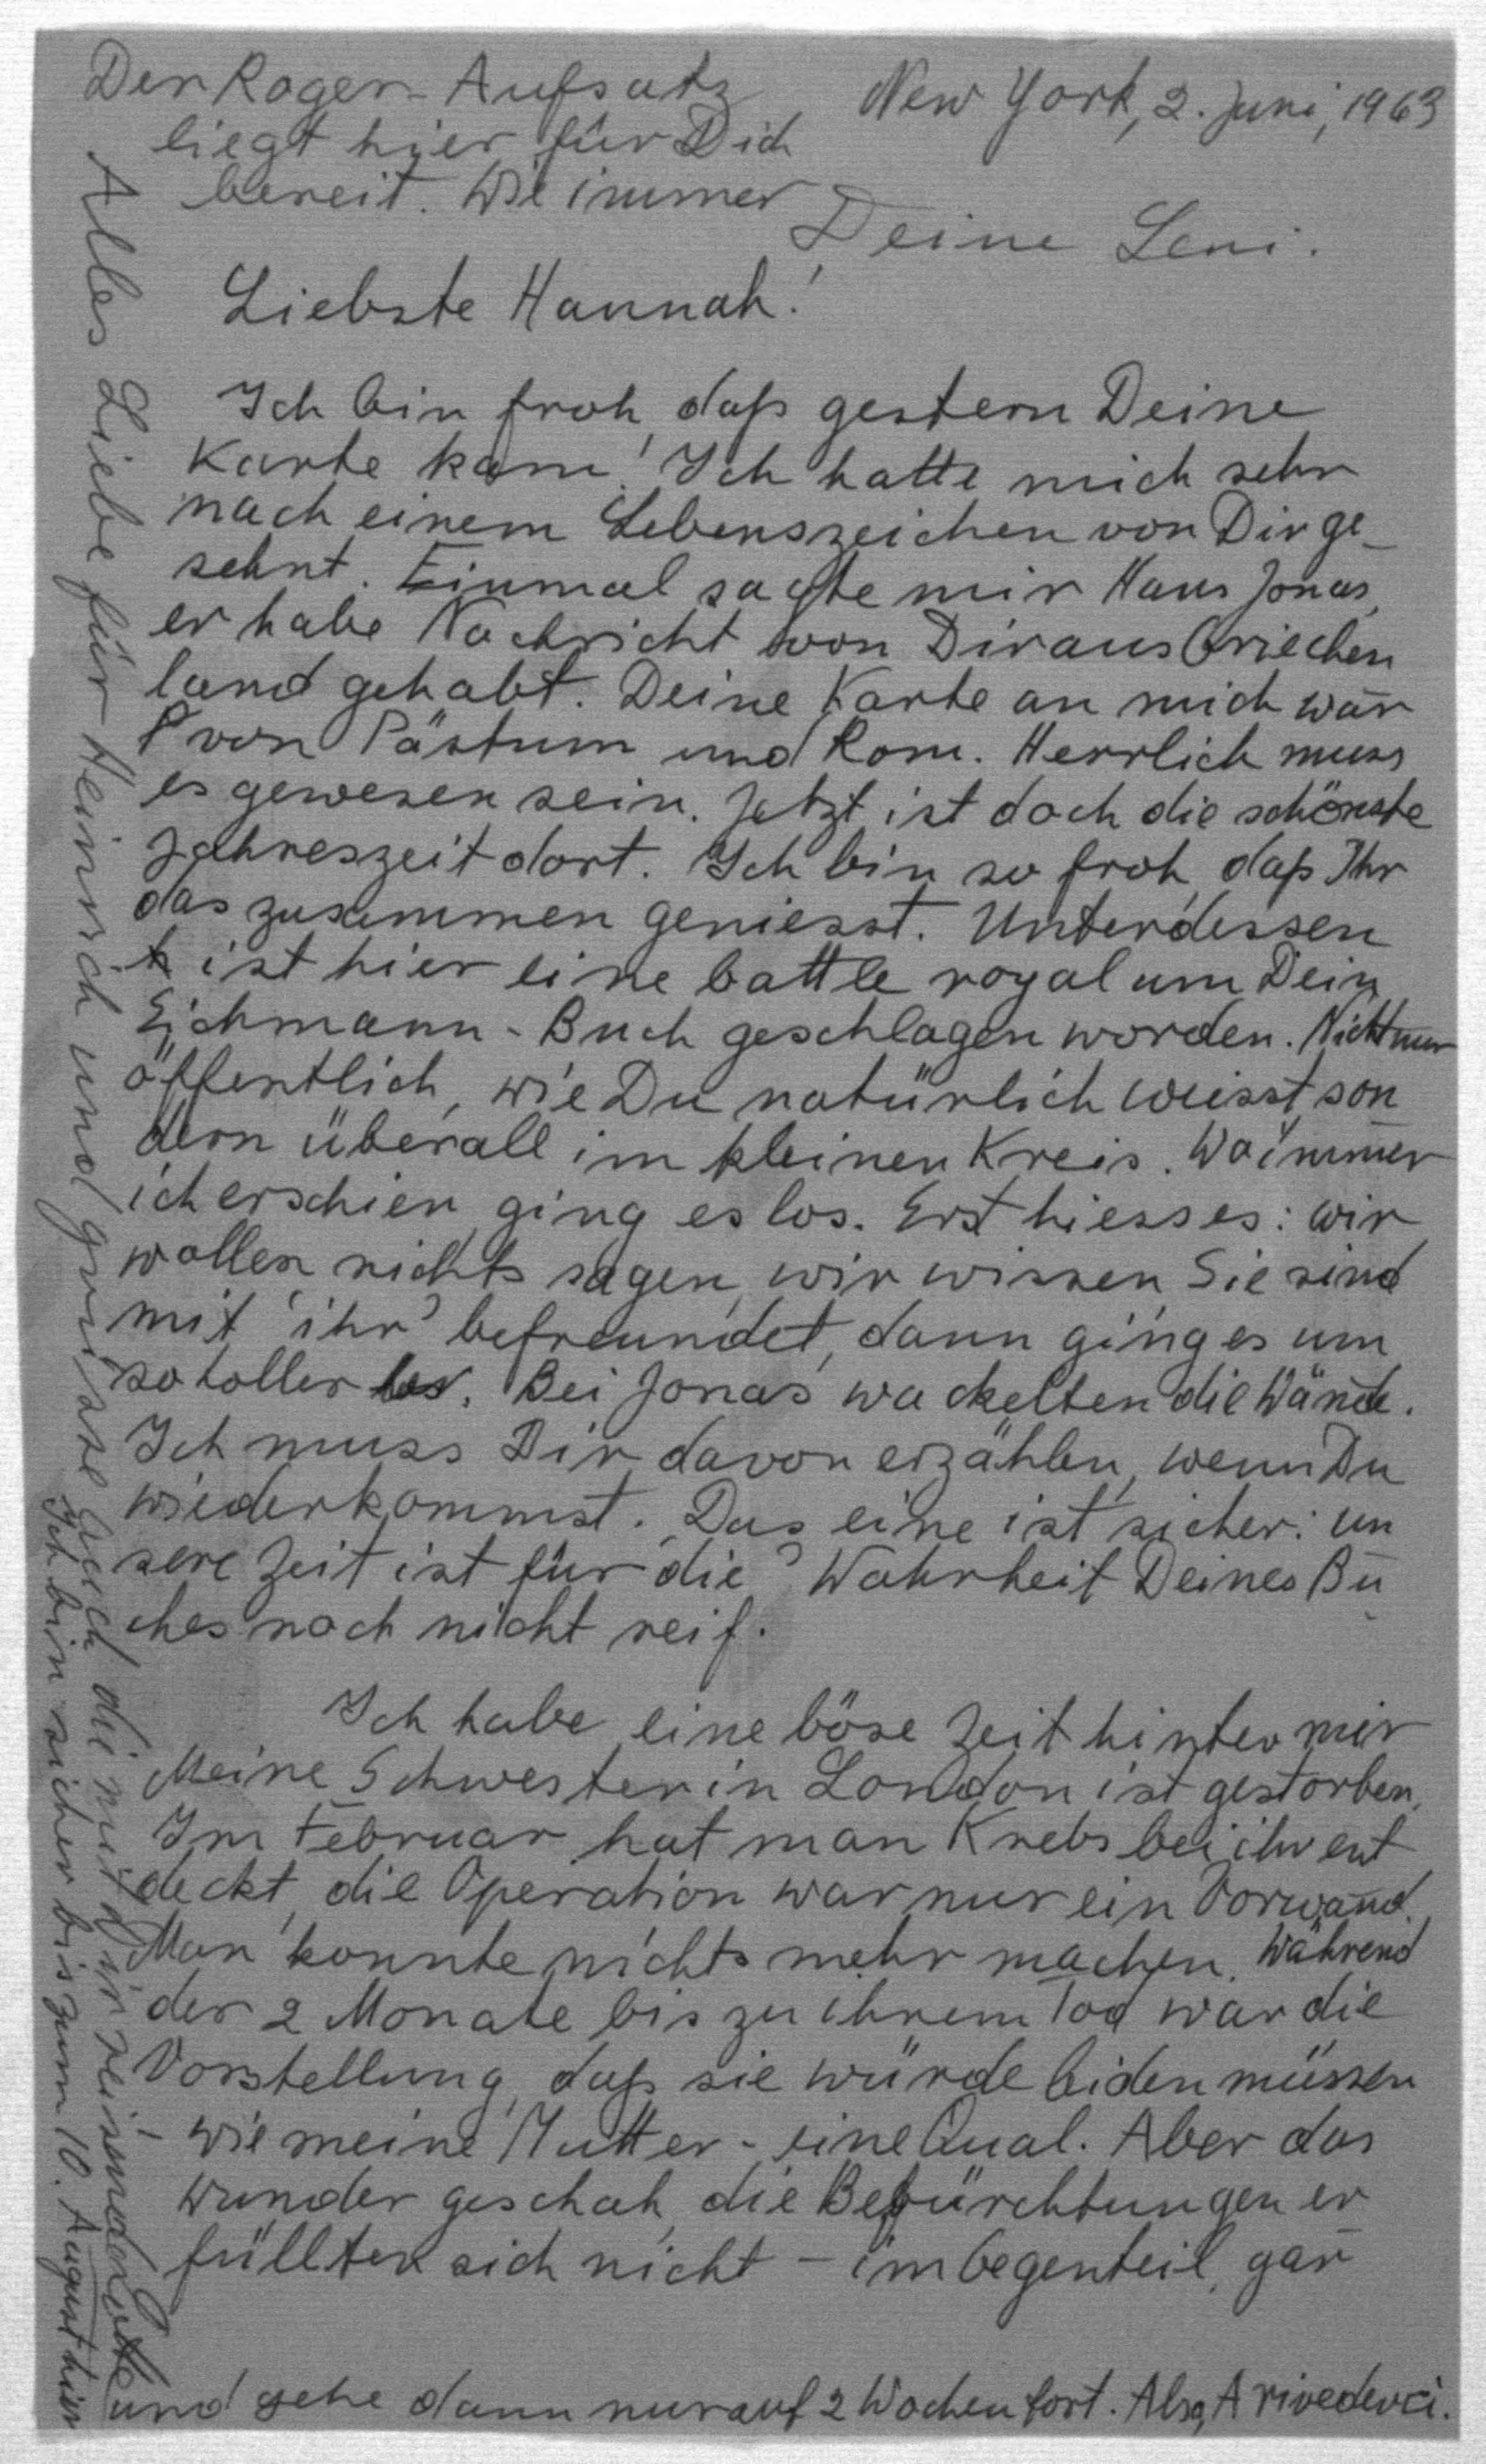 Der Roger-Aufsatz
liegt hier für Dich
bereit. Wie immer
Deine Leni.
New York, 2. Juni, 1963
Liebste Hannah!
Ich bin froh, daß gestern Deine
Karte kam! Ich hatte mich sehr
nach einem Lebenszeichen von Dir ge-
sehnt. Einmal sagte mir Hans Jonas,
er habe Nachricht von Dir aus Griechen
land gehabt. Deine Karte an mich war
von Pästum und Rom. Herrlich muss
es gewesen sein. Jetzt ist doch die schönste
Jahreszeit dort. Ich bin so froh, daß Ihr
das zusammen geniesst. Unterdessen
ist hier eine battle royal um Dein
Eichmann-Buch geschlagen worden. Nicht nur
öffentlich, wie Du natürlich weisst, son
dern überall im kleinen Kreis. Wo immer
ich erschien, ging es los. Erst hiess es: wir
wollen nichts sagen, wir wissen Sie sind
mit 'ihr' befreundet, dann ging es um
so toller los. Bei Jonas wackelten die Wände.
Ich muss Dir davon erzählen, wenn Du
wiederkommst. Das eine ist sicher: un
sere Zeit ist für die Wahrheit Deines Bu
ches noch nicht reif.
Ich habe eine böse Zeit hinter mir
Meine Schwester in London ist gestorben.
Im Februar hat man Krebs bei ihr ent
deckt, die Operation war nur ein Vorwand.
Man konnte nichts mehr machen. Während
der 2 Monate bis zu ihrem Tod war die
Vorstellung, daß sie würde leiden müssen
wie meine Mutter - eine Qual. Aber das
Wunder geschah, die Befürchtungen er
füllten sich nicht - im Gegenteil, gar
Alles Liebe für Heinrich und grüsse auch die mit Dir reisende
Ich bin sicher bis zum 10. August hier
und gehe dann nur auf 2 Wochen fort. Also, Arivederci.